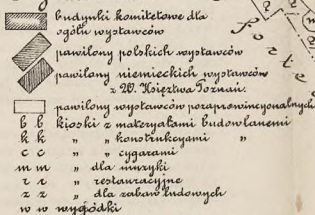 budynki komitetowe dla
ogółu wystawców
pawilony polskich wystawców
pawilony niemieckich wystawców
z W. Księztwa Poznań.
pawilony wystawców pozaprowincyonalnych
b b kioski z materyałami budowlanemi
k k „ „ konstrukcyami „
c c „ „ cygarami
m m „ dla muzyki
r r „ restauracyjne
z z „ dla zabaw ludowych
w w wygódki